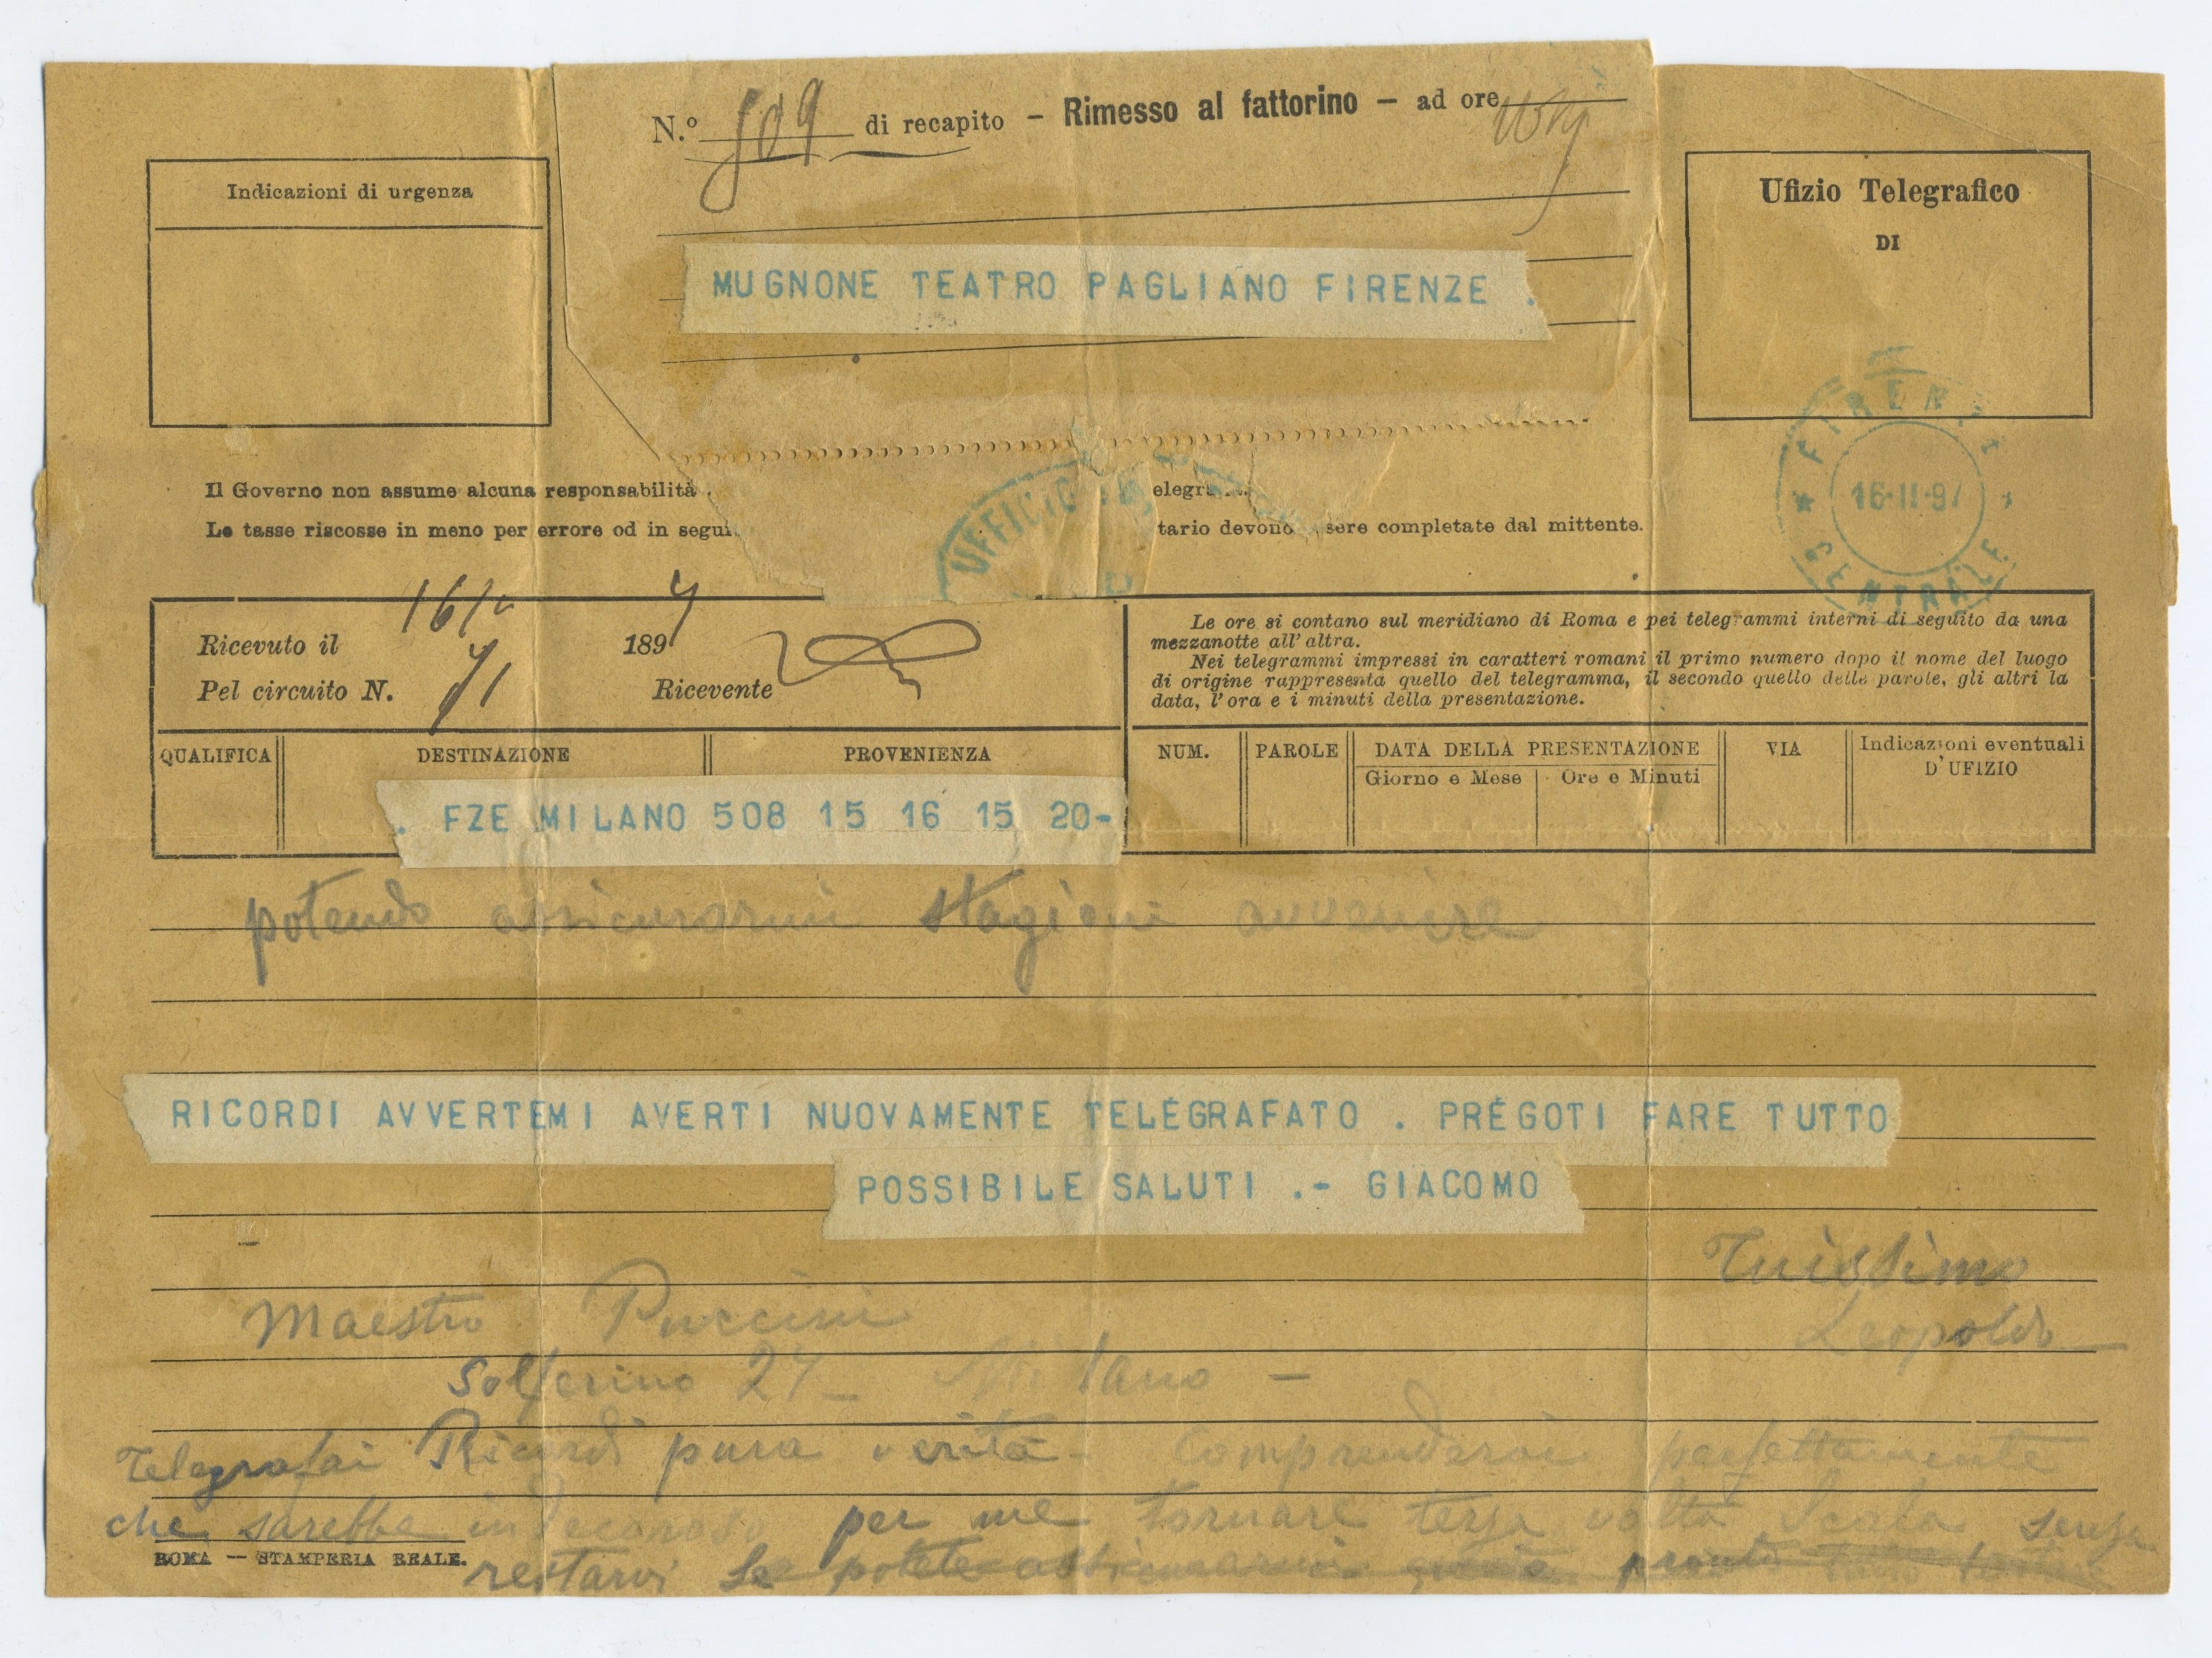 N.º 809 di recapito – Rimesso al fattorino – ad ore
Indicazioni di urgenza
Ufizio Telegrafico
DI
MUGNONE TEATRO PAGLIANO FIRENZE .
FIREN
16·11·97
CENTRALE
Il Governo non assume alcuna responsabilità
elegra
UFFICIO
Le tasse riscosse in meno per errore od in segui
tario devono sere completate dal mittente.
Ricevuto il 16/11 1897
Pel circuito N. 71 Ricevente
Le ore si contano sul meridiano di Roma e pei telegrammi interni di seguito da una
mezzanotte all' altra.
Nei telegrammi impressi in caratteri romani il primo numero dopo il nome del luogo
di origine rappresenta quello del telegramma, il secondo quello delle parole, gli altri la
data, l'ora e i minuti della presentazione.
QUALIFICA DESTINAZIONE PROVENIENZA NUM. PAROLE DATA DELLA PRESENTAZIONE VIA Indicazioni eventuali
D'UFIZIO
Giorno e Mese Ore e Minuti
. FZE MILANO 508 15 16 15 20-
potendo assicurarmi stagioni avvenire
RICORDI AVVERTEMI AVERTI NUOVAMENTE TELEGRAFATO . PREGOTI FARE TUTTO
POSSIBILE SALUTI .- GIACOMO
Tuissimo
Maestro Puccini
Leopoldo
Solferino 27 – Milano –
Telegrafai Ricordi pura verità – Comprenderai perfettamente
che sarebbe indecoroso per me tornare terza volta Scala senza
ROMA — STAMPERIA REALE.
restarvi se potete assicurarmi